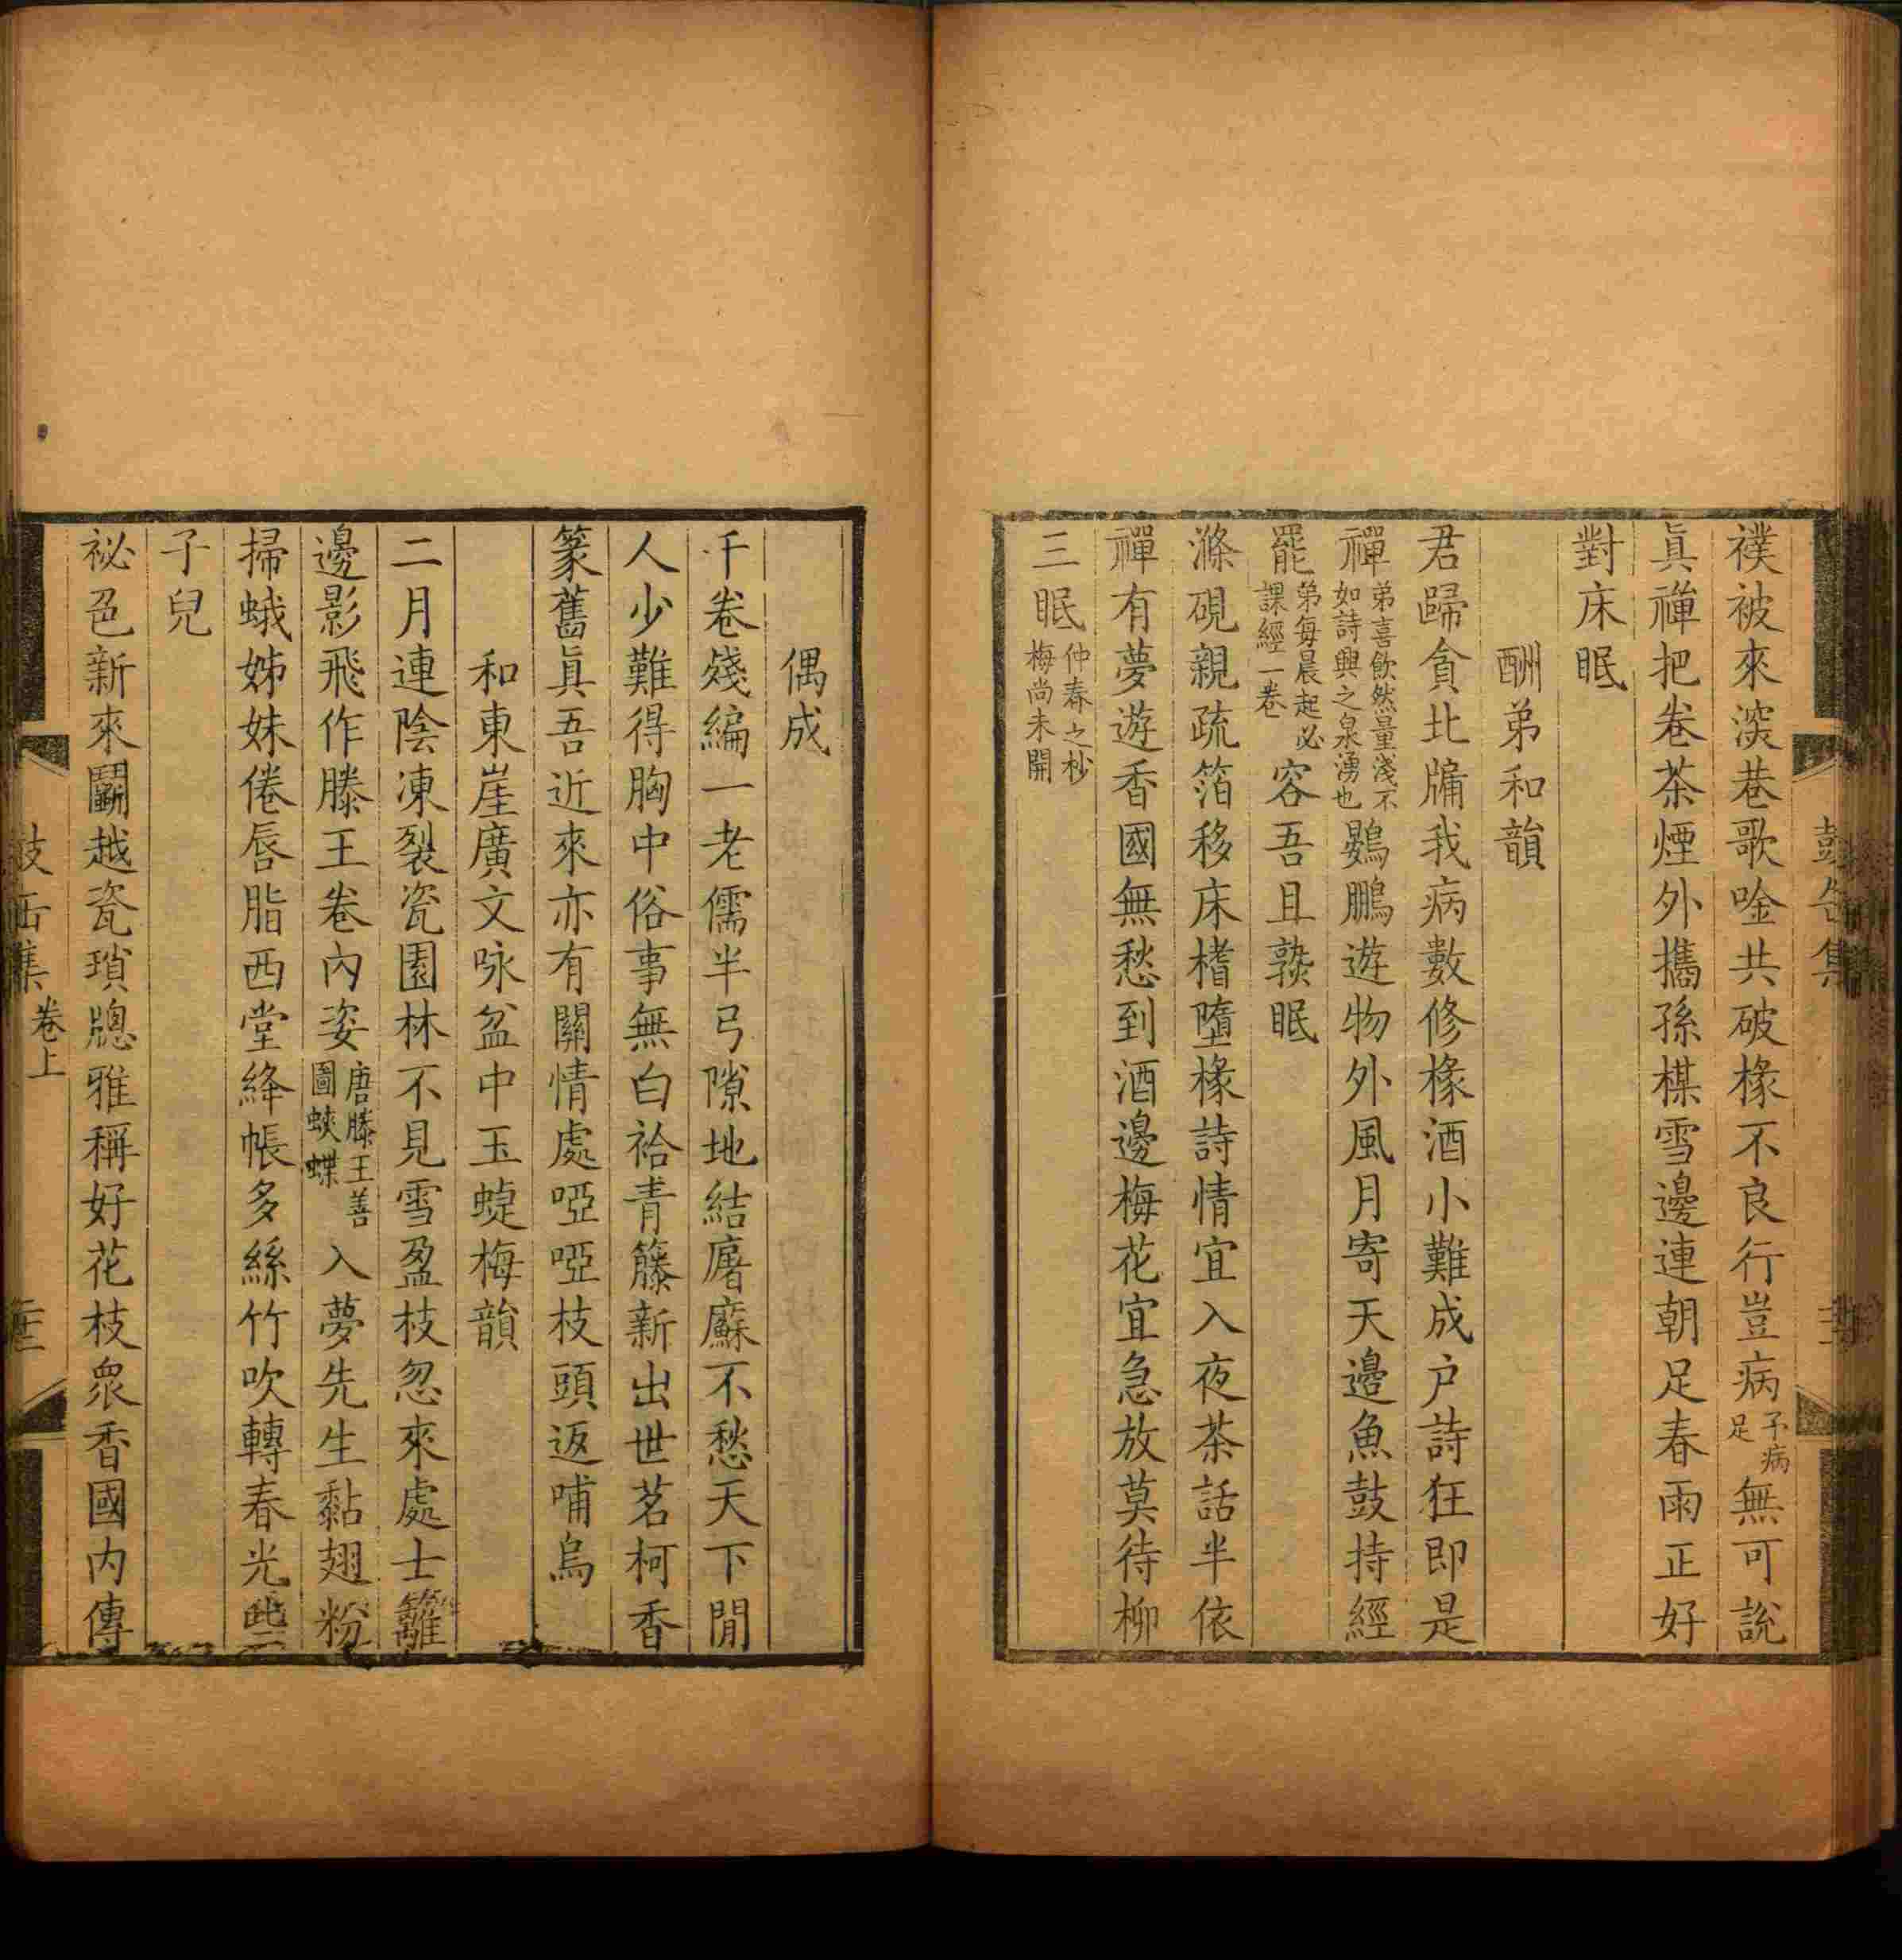 襆被來深巷歌唫共破椽不良行豈病予病足無可說
眞禪把卷茶煙外攜孫棋雪邊連朝足春雨正好
對床眠
酬弟和韻
君歸貪北牖我病數修椽酒小難成户詩狂即是
禪弟喜飲然量淺不如詩興之泉湧也鷃鵬遊物外風月寄天邊魚鼓持經
罷弟每晨起必課經一卷容吾且孰眠
滌硯親疏箔移床榰墮椽詩情宜入夜茶話半依
禪有夢遊香國無愁到酒邊梅花宜急放莫待柳
三眠仲春之杪梅尚未開
偶成
千卷殘編一老儒半弓隙地結廜㢝不愁天下閒
人少難得胸中俗事無白袷青籐新出世茗柯香
篆舊眞吾近來亦有關情處啞啞枝頭返哺烏
和東崖廣文咏盆中玉蜨梅韻
二月連陰凍裂瓷園林不見雪盈枝忽來處士籬
邊影飛作滕王卷內姿唐滕王善圖蛺蝶入夢先生黏翅粉
掃蛾姊妹倦唇脂西堂絳帳多絲竹吹轉春光些
子兒
祕色新來鬬越瓷瑣牎雅稱好花枝衆香國內傳
卷上